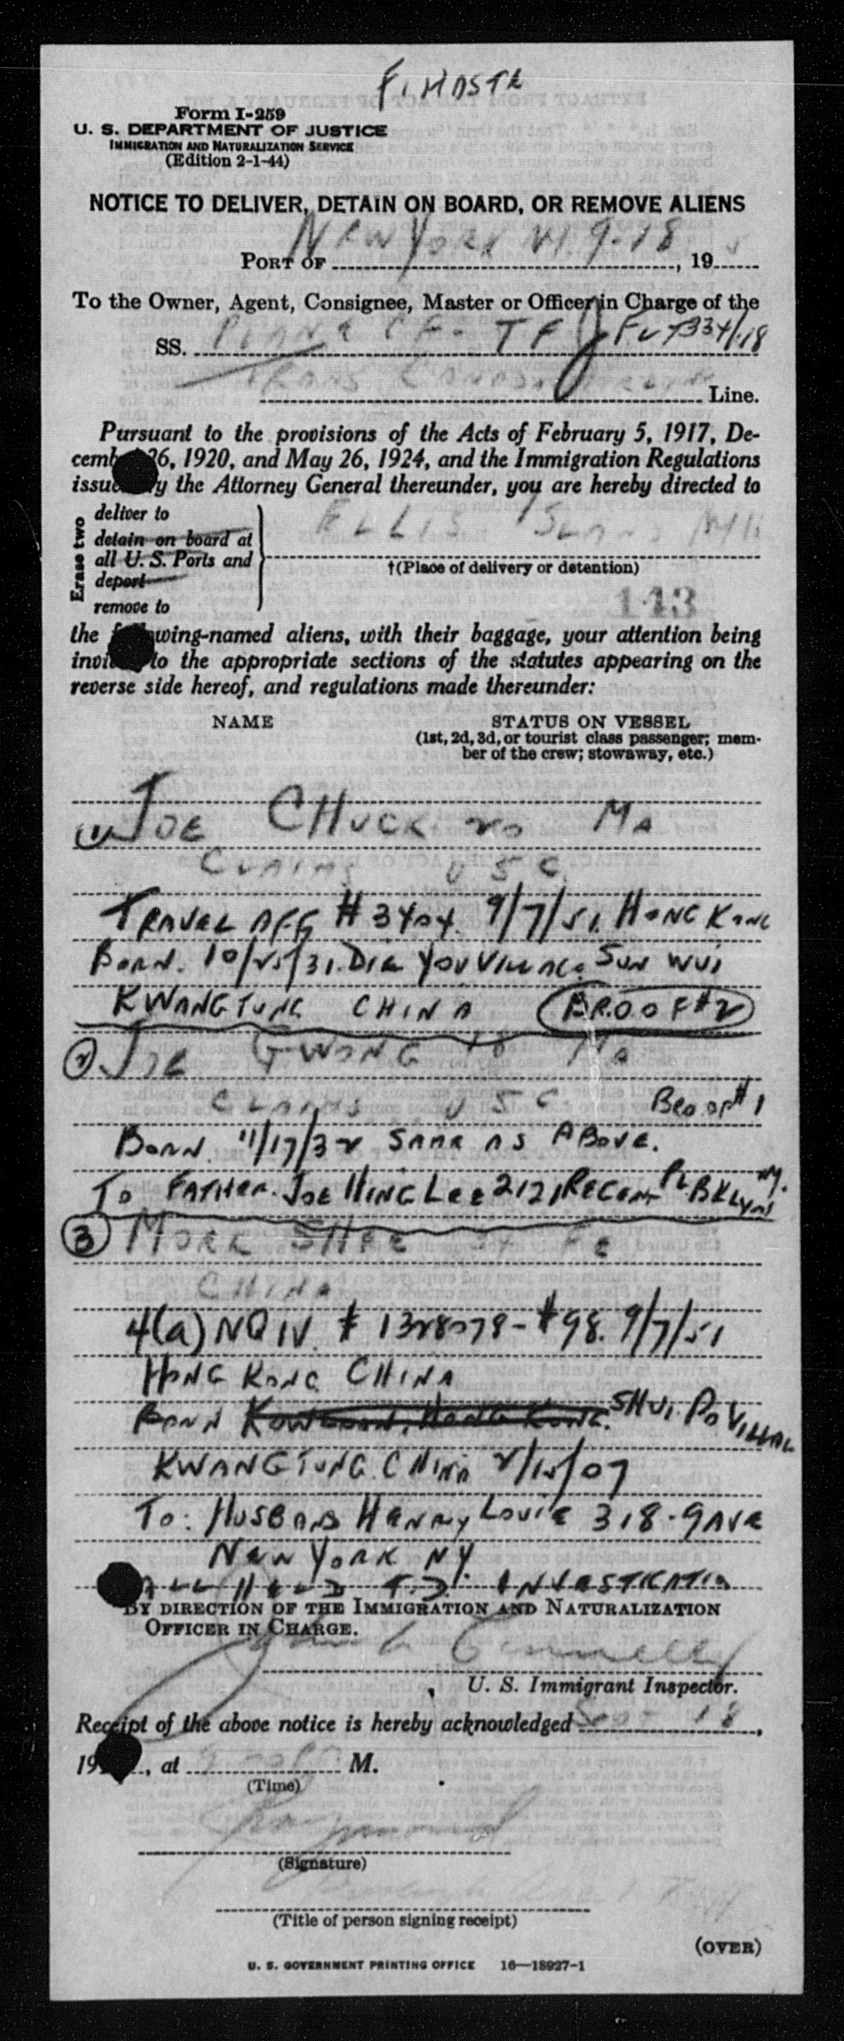 Form I-259
U. S. DEPARTMENT OF JUSTICE
IMMIGRATION AND NATURALIZATION SERVICE
(Edition 2-1-44)
NOTICE TO DELIVER, DETAIN ON BOARD, OR REMOVE ALIENS
PORT OF NEW YORK NY. 9-18, 19
To the Owner, Agent, Consignee, Master or Officer in Charge of the
SS. PLANE CF-TF FLT 334/18
TRANS CANADA Line.
Pursuant to the provisions of the Acts of February 5, 1917, De-
cember 26, 1920, and May 26, 1924, and the Immigration Regulations
issued by the Attorney General thereunder, you are hereby directed to
Erase two
deliver to
detain on board at
all U. S. Ports and
deport
remove to
ELLIS ISLAND NYH
†(Place of delivery or detention)
143
the following-named aliens, with their baggage, your attention being
invited to the appropriate sections of the statutes appearing on the
reverse side hereof, and regulations made thereunder:
NAME STATUS ON VESSEL
(1st, 2d, 3d, or tourist class passenger; mem-
ber of the crew; stowaway, etc.)
(1) JOE CHUCK 20 MA
CLAIMS USC
TRAVEL AFF #3404. 9/7/51. HONG KONG
BORN. 10/25/31. DIE YOU VILLAGE SUN WUI
KWANGTUNG CHINA BR.OOF #2
(2) JOE GWONG 18 MA
CLAIMS USC BRO OF #1
BORN. 11/17/32 SAME AS ABOVE.
TO FATHER. JOE HING LEE 2121 REGENT PL BKLYN NY.
(3) MORK SHEE 44 FE
CHINA
4(a) NQIV. # 1328079-#98. 9/7/51
HONG KONG CHINA
BORN KOWLOON, HONG KONG. SHUI PO VILLAL
KWANGTUNG. CHINA 2/15/07
TO: HUSBAND HENRY LOUIE 318-9 AVE
NEW YORK NY.
ALL HELD T.D. INVESTIGATION
BY DIRECTION OF THE IMMIGRATION AND NATURALIZATION
OFFICER IN CHARGE.
John L Connelly
U. S. Immigrant Inspector.
Receipt of the above notice is hereby acknowledged Sept 18,
19, at M.
(Time)
Raymond
(Signature)
(Title of person signing receipt)
(OVER)
U. S. GOVERNMENT PRINTING OFFICE 16—18927-1